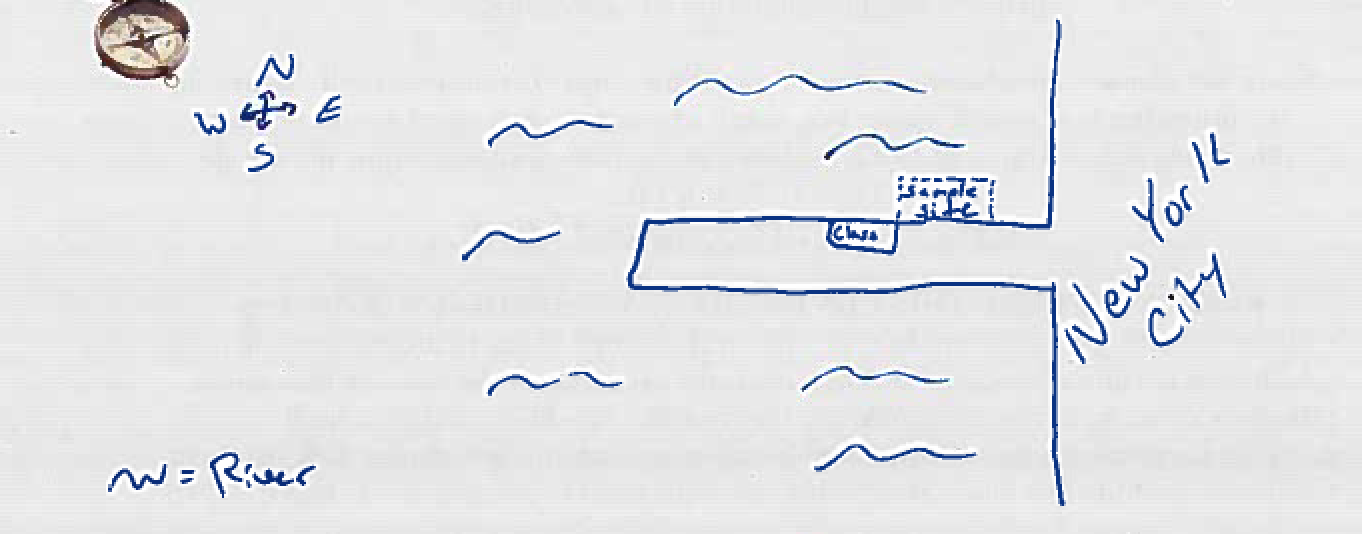 N
W E
S
Sample
Site
Class
New York
City
~ = River